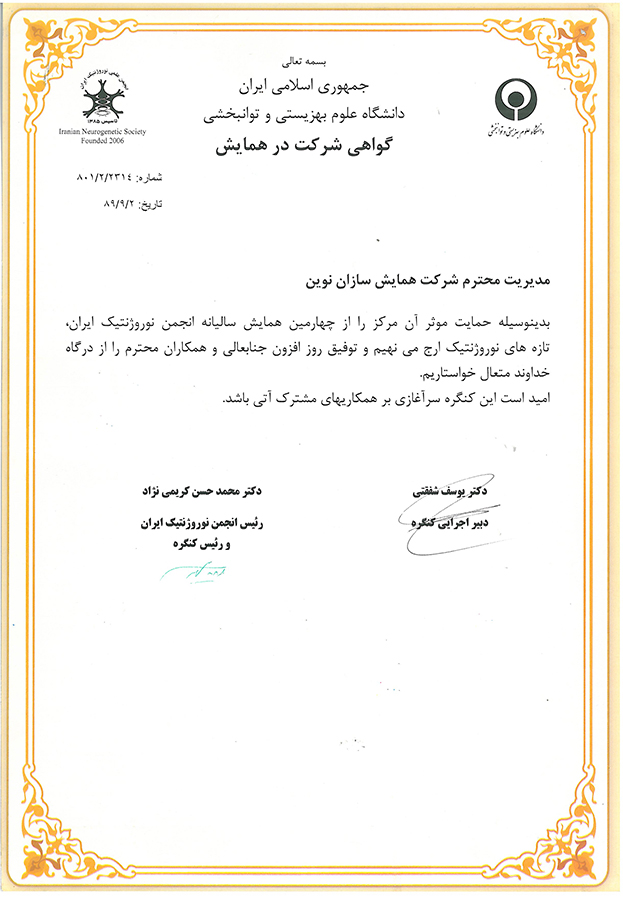 بسمه تعالی
جمهوری اسلامی ایران
دانشگاه علوم بهزیستی و توانبخشی
گواهی شرکت در همایش
انجمن علمی نوروژنتیک ایران
تاسیس ۱۳۸۵
Iranian Neurogenetic Society
Founded 2006
دانشگاه علوم بهزیستی و توانبخشی
شماره: ۸۰۱/۲/۲۳۱۴
تاریخ: ۸۹/۹/۲
مدیریت محترم شرکت همایش سازان نوین
بدینوسیله حمایت موثر آن مرکز را از چهارمین همایش سالیانه انجمن نوروژنتیک ایران،
تازه های نوروژنتیک ارج می نهیم و توفیق روز افزون جنابعالی و همکاران محترم را از درگاه
خداوند متعال خواستاریم.
امید است این کنگره سرآغازی بر همکاریهای مشترک آتی باشد.
دکتر یوسف شفقتی
دبیر اجرایی کنگره
دکتر محمد حسن کریمی نژاد
رئیس انجمن نوروژنتیک ایران
و رئیس کنگره